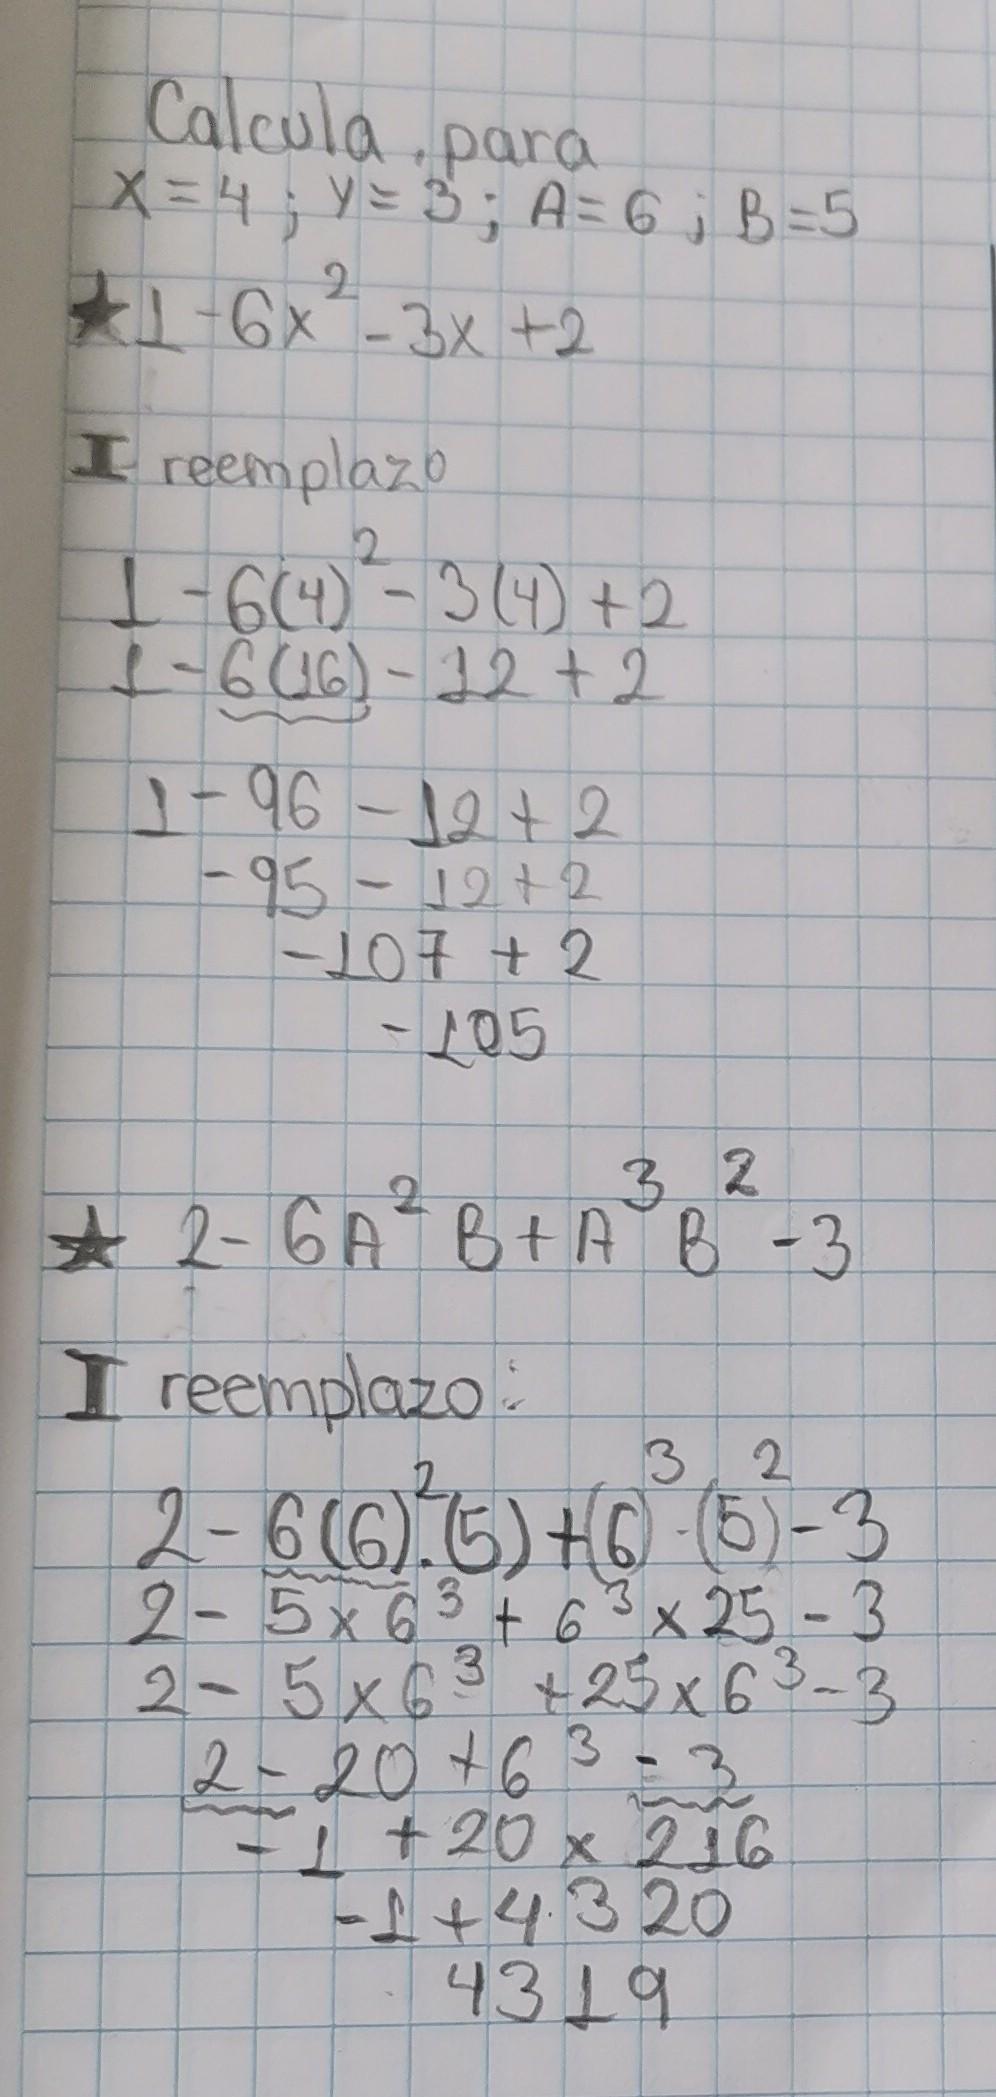 Calcula para
x = 4 ; y = 3 ; A = 6 ; B = 5
★ 1 - 6x² - 3x + 2
I reemplazo
1 - 6(4)² - 3(4) + 2
1 - 6(16) - 12 + 2
1 - 96 - 12 + 2
- 95 - 12 + 2
- 107 + 2
- 105
★ 2 - 6A²B + A³B² - 3
I reemplazo:
2 - 6(6)².(5) + (6)³ · (5)² - 3
2 - 5 x 6³ + 6³ x 25 - 3
2 - 5 x 6³ + 25 x 6³ - 3
2 - 20 + 6³ - 3
- 1 + 20 x 216
- 1 + 4.320
4319